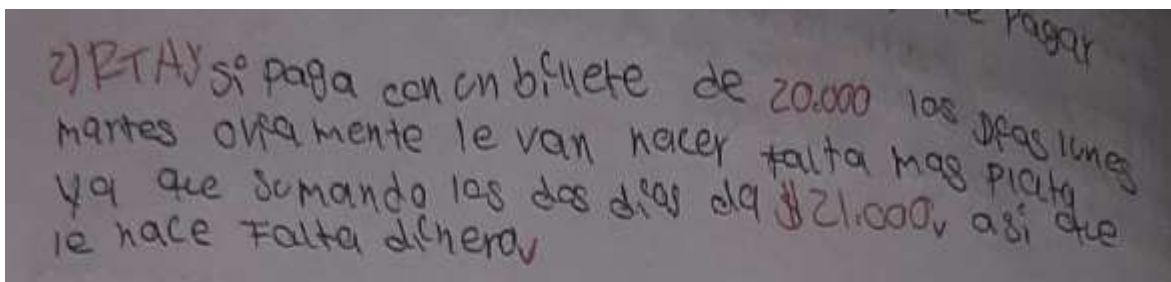 ce pagar
2) RTA) si paga con un billete de 20.000 los Dias lunes
martes oviamente le van hacer falta mas plata
ya que sumando los dos dias da $21.000, asi que
le hace Falta dinero,